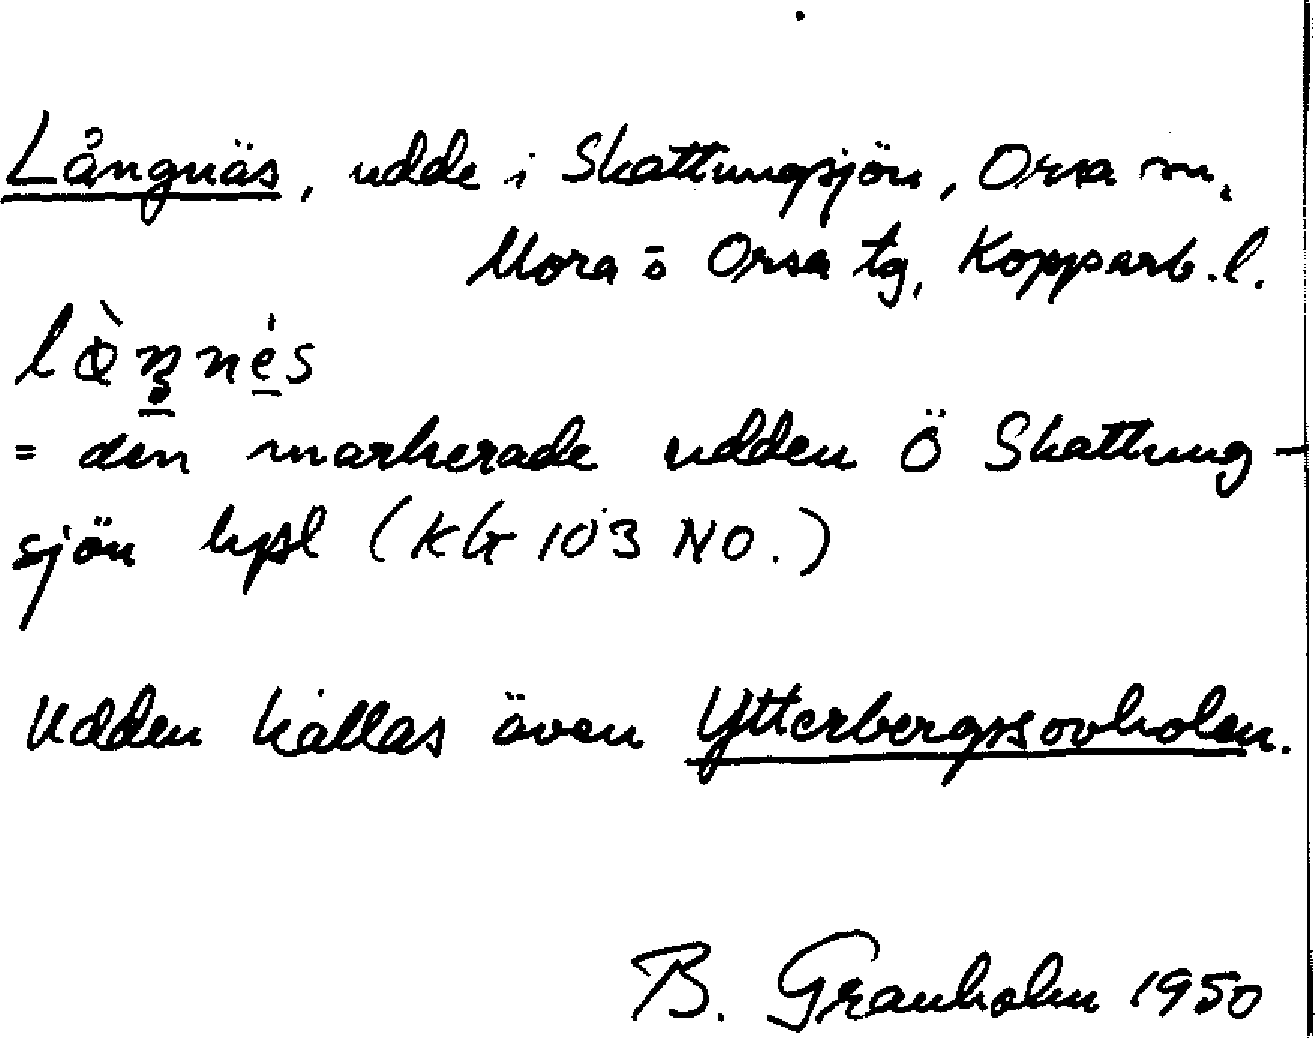 Långnäs, udde i Skattungsjön, Orsa sn,
Mora o Orsa tg, Kopparb. l.
= den markerade udden Ö Skattung-
sjön kpsl (KG 103 NO.)
Udden kallas även Ytterbergssovholen.
B. Granholm 1950